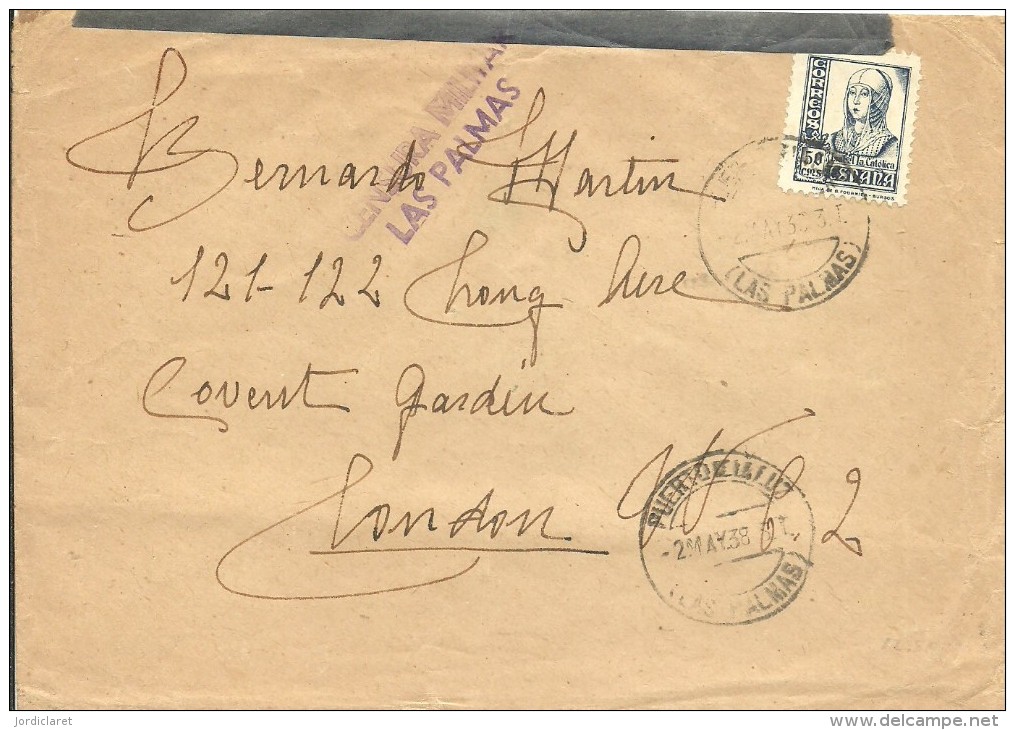 CENSURA MILITAR
LAS PALMAS
CORREOS
50
CTS.
Isabel la Católica
ESPAÑA
HIJA DE B. FOURNIER - BURGOS
Bernardo Martin
121-122 Long Acre
Covent Garden
London W C 2
2 MAY 38 3.T.
(LAS PALMAS)
PUERTO DE LA LUZ
-2 MAY 38
(LAS PALMAS)
jordiclaret
www.delcampe.net